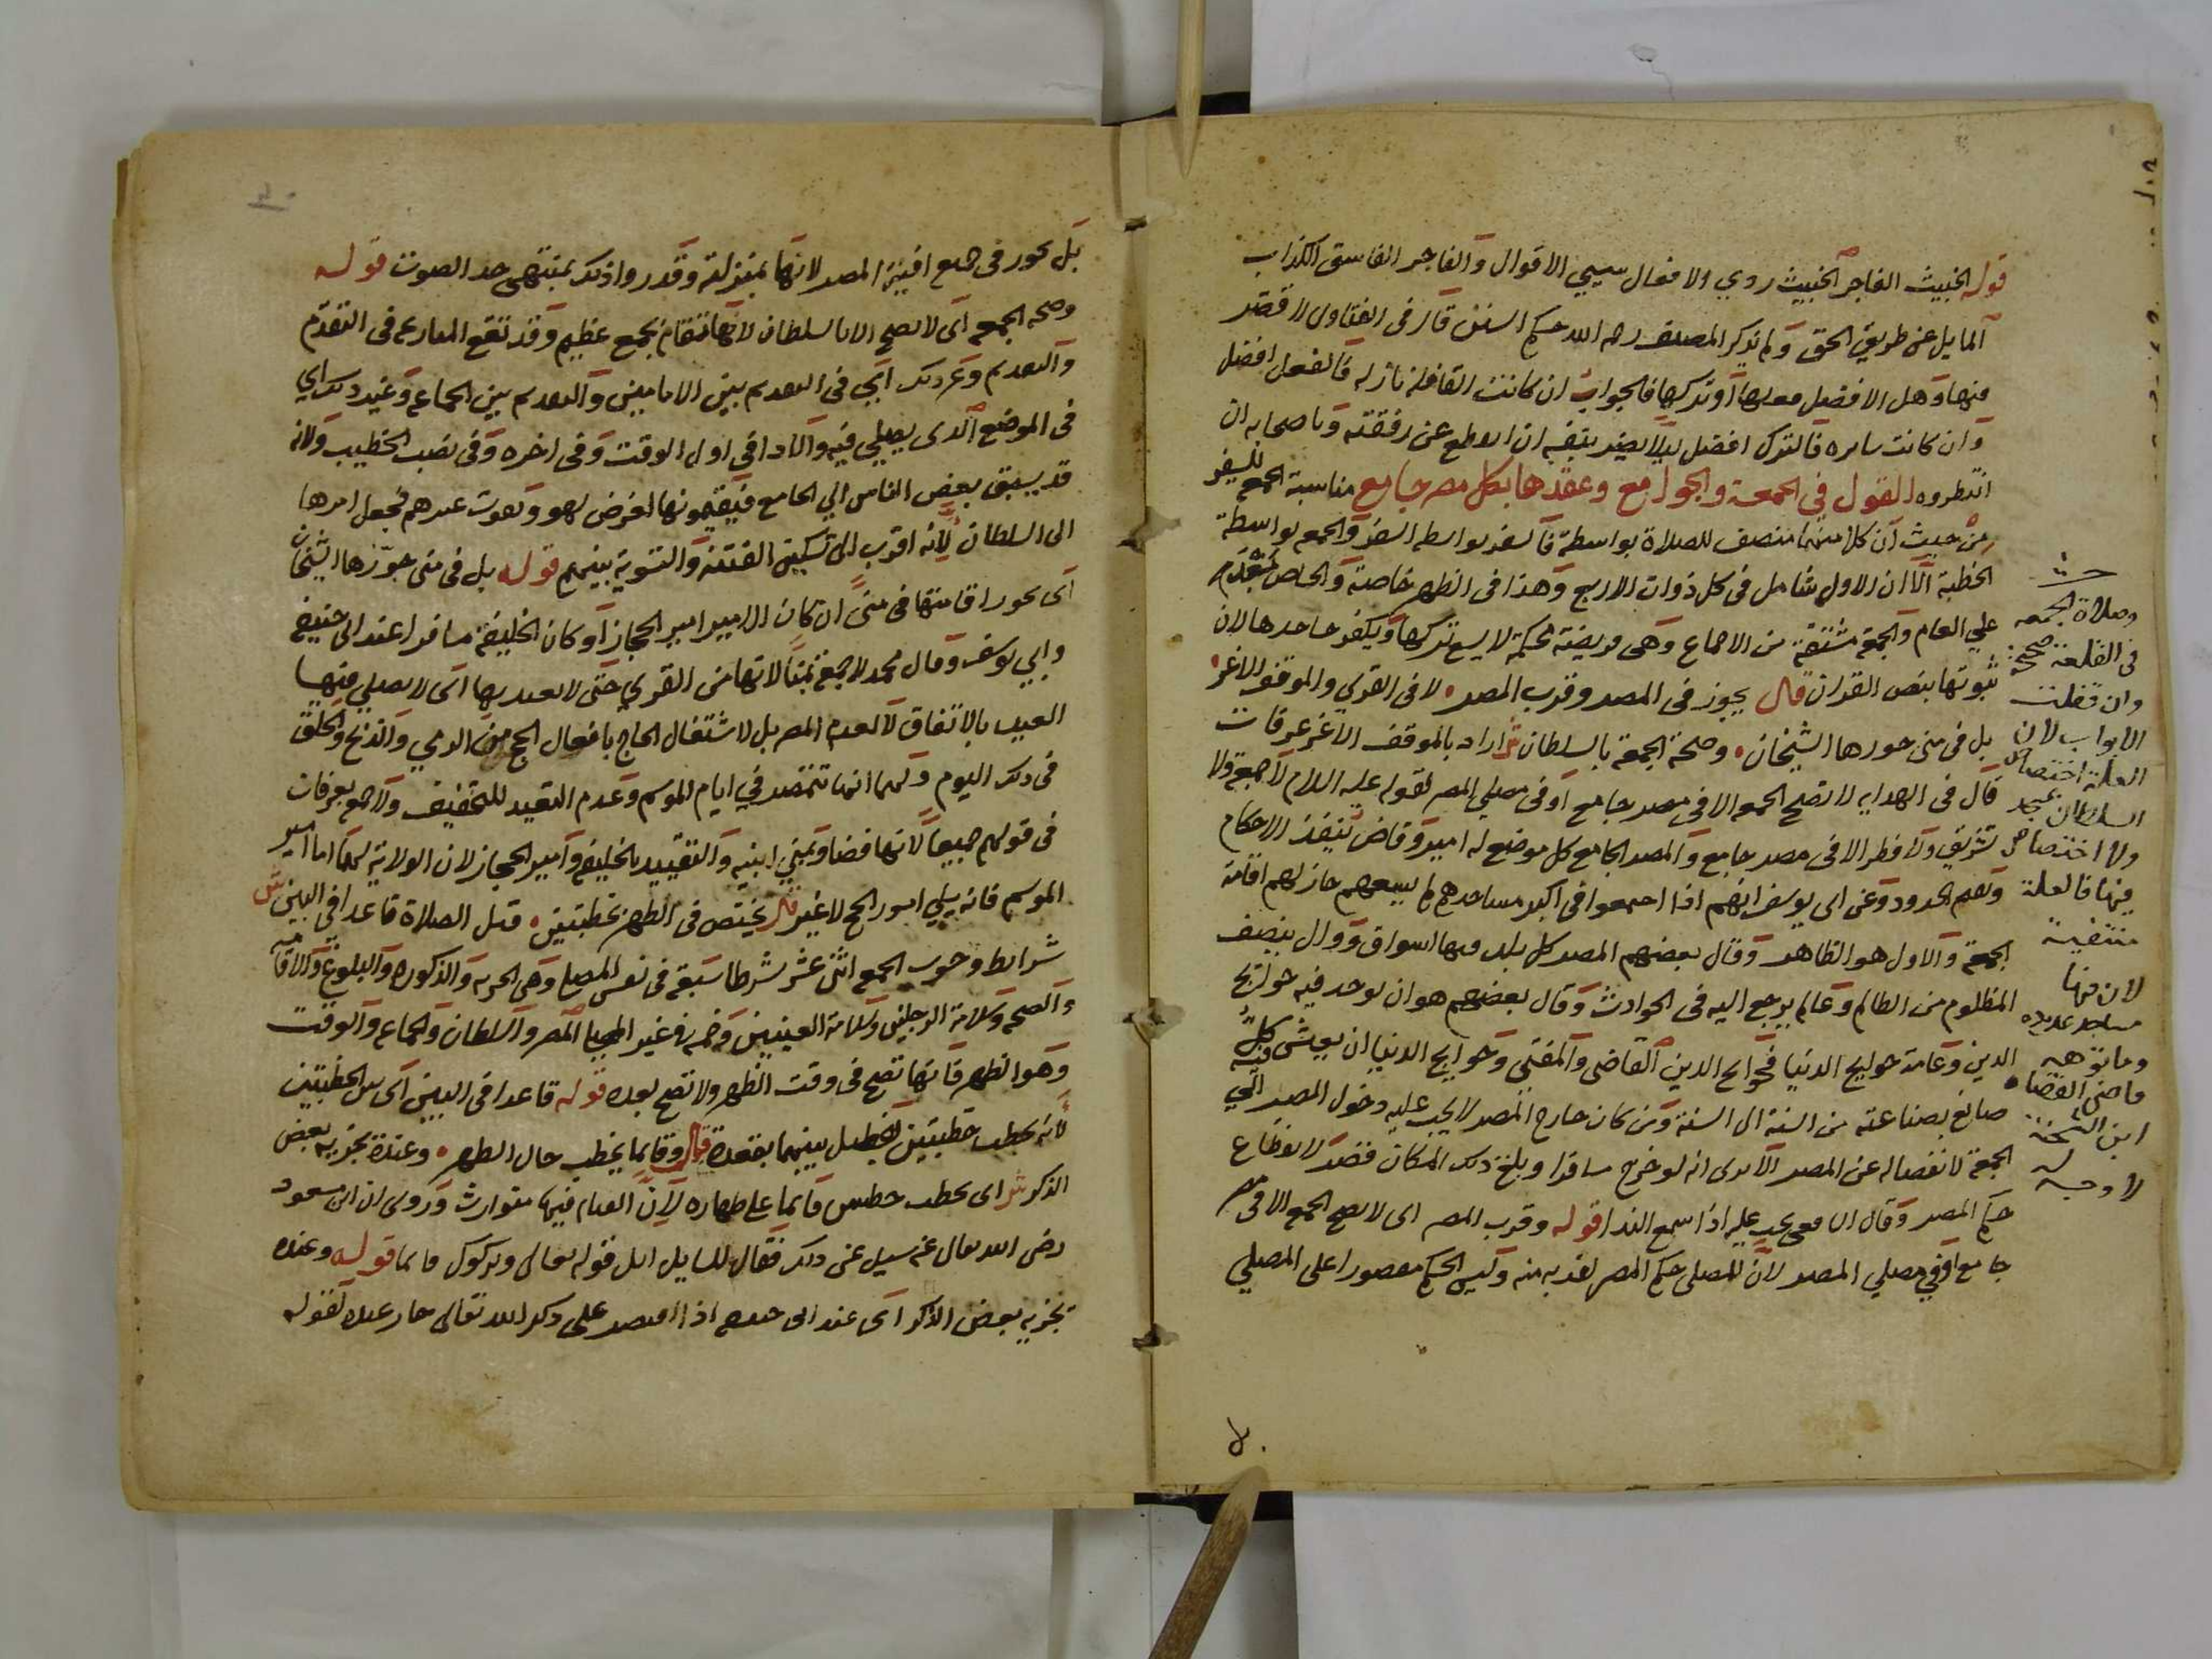 قوله الخبيث الفاجر الخبيث ردي الافعال سيي الاقوال والفاجر الفاسق الكذاب
المايل عن طريق الحق ولم يذكر المصنف رحمه الله حكم السنن قال في الفتاوى لا قصر
فيها وهل الافضل فعلها او تركها فالجواب ان كانت القافلة نازلة فالفعل افضل
وان كانت سايره فالترك افضل ليلا يضر بنفسه ان انقطع عن رفقته وباصحابه ان
انتظروه القول في الجمعة والجوامع وعقدها بكل مصر جامع مناسبة الجمع للسفر
من حيث ان كلا منهما منصف للصلاة بواسطة فالسفر بواسطه السفر والجمعه بواسطة
الخطبة الا ان الاول شامل في كل ذوات الاربع وهذا في الظهر خاصة والخاص بعد
علي العام والجمعة مشتقة من الاجماع وهي فريضة محكمة لا يسع تركها ويكفر جاحدها لان
ثبوتها بنص القران قال يجوز في المصر وقرب المصر لا في القرى والموقف الاغر
بل في منى جوزها الشيخان وصحة الجمعة بالسلطان ش اراد بالموقف الاغر عرفات
قال في الهدايه لا تصح الجمعه الا في مصر جامع او في مصلي المصر لقوله عليه السلام لا جمعة ولا
تشريق ولا فطر الا في مصر جامع والمصر الجامع كل موضع له امير وقاض ينفذ الاحكام
ويقيم الحدود وعن ابي يوسف انهم اذا اجتمعوا في اكبر مساجدهم لم يسعهم جاز لهم اقامة
الجمعة والاول هو الظاهر وقال بعضهم المصر كل بلد فيها اسواق ووال ينصف
المظلوم من الظالم وعالم يرجع اليه في الحوادث وقال بعضهم هو ان يوجد فيه حوايج
الدين وعامة حوايج الدنيا فحوايج الدين القاضي والمفتي وحوايج الدنيا ان يعيش فيه كل
صانع بصناعته من السنة الى السنة ومن كان خارج المصر لا يجب عليه دخول المصر الي
الجمعة لانفصاله عن المصر الا يرى انه لو خرج مسافرا وبلغ ذلك المكان قصر لانقطاع
حكم المصر وقال الشافعي يجب عليه اذا سمع الندا قوله وقرب المصر اى لا تصح الجمعه الا في مصر
جامع او في مصلي المصر لان للمصلى حكم المصر لقربه منه وليس الحكم مقصورا على المصلي
وصلاة الجمعه
في القلعة صحيحة
وان قفلت
الابواب لان
العلة اختصاص
السلطان
ولا اختصاص
فيها فالعلة
منتفية
لان فيها
مساجد عديده
وما توهمه
قاضي القضاه
ابن الشحنة
لا وجه له
بل يجوز في جميع افنية المصر لانها بمنزلته وقدروا ذلك بمنتهى حد الصوت قوله
وصحة الجمعه اى لا تصح الا بالسلطان لانها تقام بجمع عظيم وقد تقع المنازعه في التقدم
والتقديم وغير ذلك اي في التقديم بين الامامين والتقديم بين الجماعه وغير ذلك اي
في الموضع الذى يصلي فيه والادا في اول الوقت وفي اخره وفي نصب الخطيب ولانه
قد يسبق بعض الناس الي الجامع فيقيمونها لغرض لهم وتفوت غيرهم فجعل امرها
الى السلطان لانه اقرب الى تسكين الفتنة والتسوية بينهم قوله بل في منى جوزها الشيخان
اى يجوز اقامتها في منى ان كان الامير امير الحجاز او كان الخليفة مسافرا عند ابي حنيفه
وابي يوسف وقال محمد لا جمعة بمنا لانها من القرى حتى لا يعيد بها اى لا يصلي فيها
العيد بالاتفاق لا لعدم المصر بل لاشتغال الحاج بافعال الحج من الرمي والذبح والحلق
في ذلك اليوم ولهما انها تتمصر في ايام الموسم وعدم التعييد للتخفيف ولا جمعه بعرفات
في قولهم جميعا لانها فضا وبمني ابنيه والتقييد بالخليفه وامير الحجاز لان الولاية لهما اما امير
الموسم فانه يلي امور الحج لا غير قال يختص في الظهر بخطبتين قبل الصلاة قاعدا في البين ش
شرايط وجوب الجمعه اثني عشر شرطا سبعة في نفس المصلي وهي الحريه والذكوره والبلوغ والاقامه
والصحه وسلامة الرجلين وسلامة العينين وخمسه في غير المصلي المصر والسلطان والجماعه والوقت
وهو الظهر فانها تصح في وقت الظهر ولا تصح بعده قوله قاعدا في البين اى بين الخطبتين
لانه يخطب خطبتين يفصل بينهما بقعدة قال وقايما يخطب حال الطهر وعنده يجزيه بعض
الذكر ش اى يخطب خطبتين قايما على طهاره لان القيام فيها متوارث وروى ان ابن مسعود
رضي الله تعالى عنه سيل عن ذلك فقال للسايل اتل قوله تعالى وتركوك قايما قوله وعنده
يجزيه بعض الذكر اى عند ابي حنيفه اذا اقتصر على ذكر الله تعالى جاز عنده لقوله